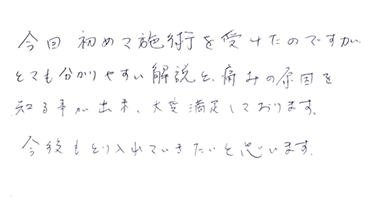 今回 初めて施術を受けたのですが、
とても分かりやすい解説と、痛みの原因を
知る事が出来、大変満足しております。
今後もとり入れていきたいと思います。